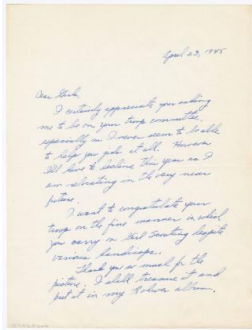 April 23, 1945
Dear Girls,
I certainly appreciate you asking
me to be on your troop committee,
especially as I never seem to be able
to help you girls at all. However
I'll have to decline this year as I
am relocating in the very near
future.
I want to congratulate your
troop on the fine manner in which
you carry on Girl Scouting despite
various handicaps.
Thank you so much for the
picture. I shall treasure it and
put it in my album.